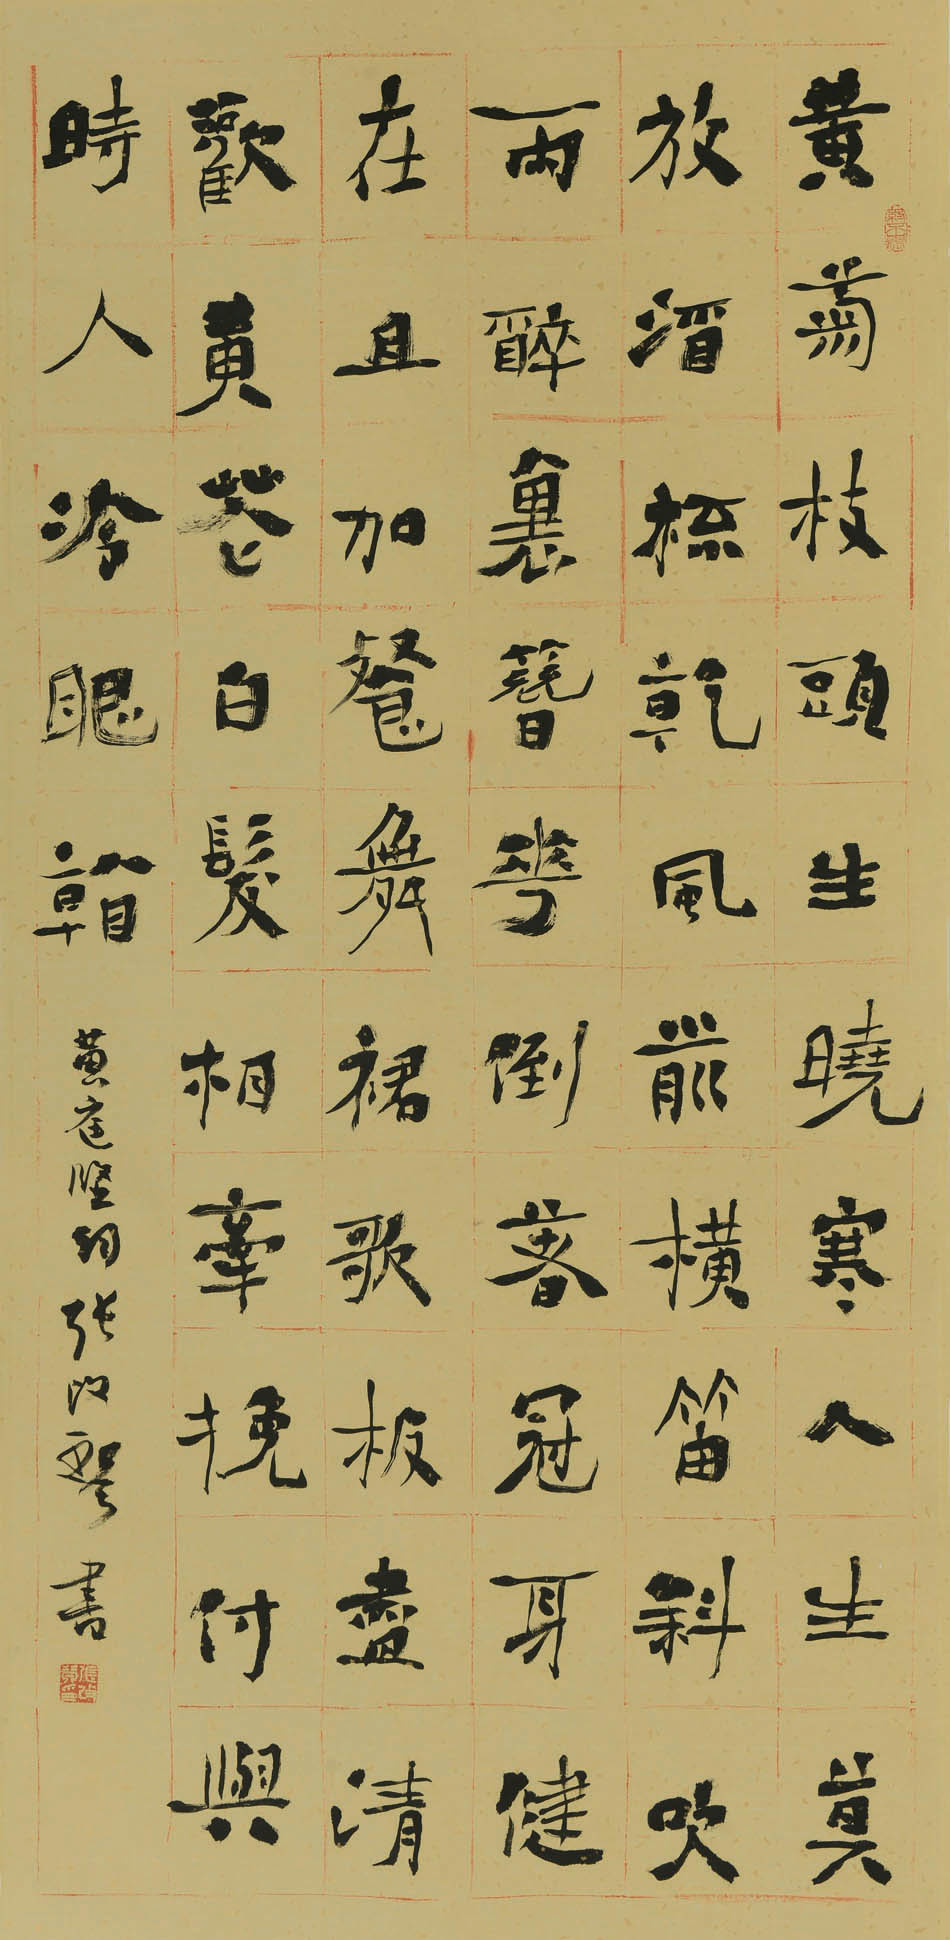 黄菊枝頭生曉寒人生莫
放酒杯乾風前橫笛斜吹
雨醉裏簪花倒著冠身健
在且加餐舞裙歌板盡清
歡黄花白髮相牽挽付與
時人冷眼看
黄庭堅詞張改琴書